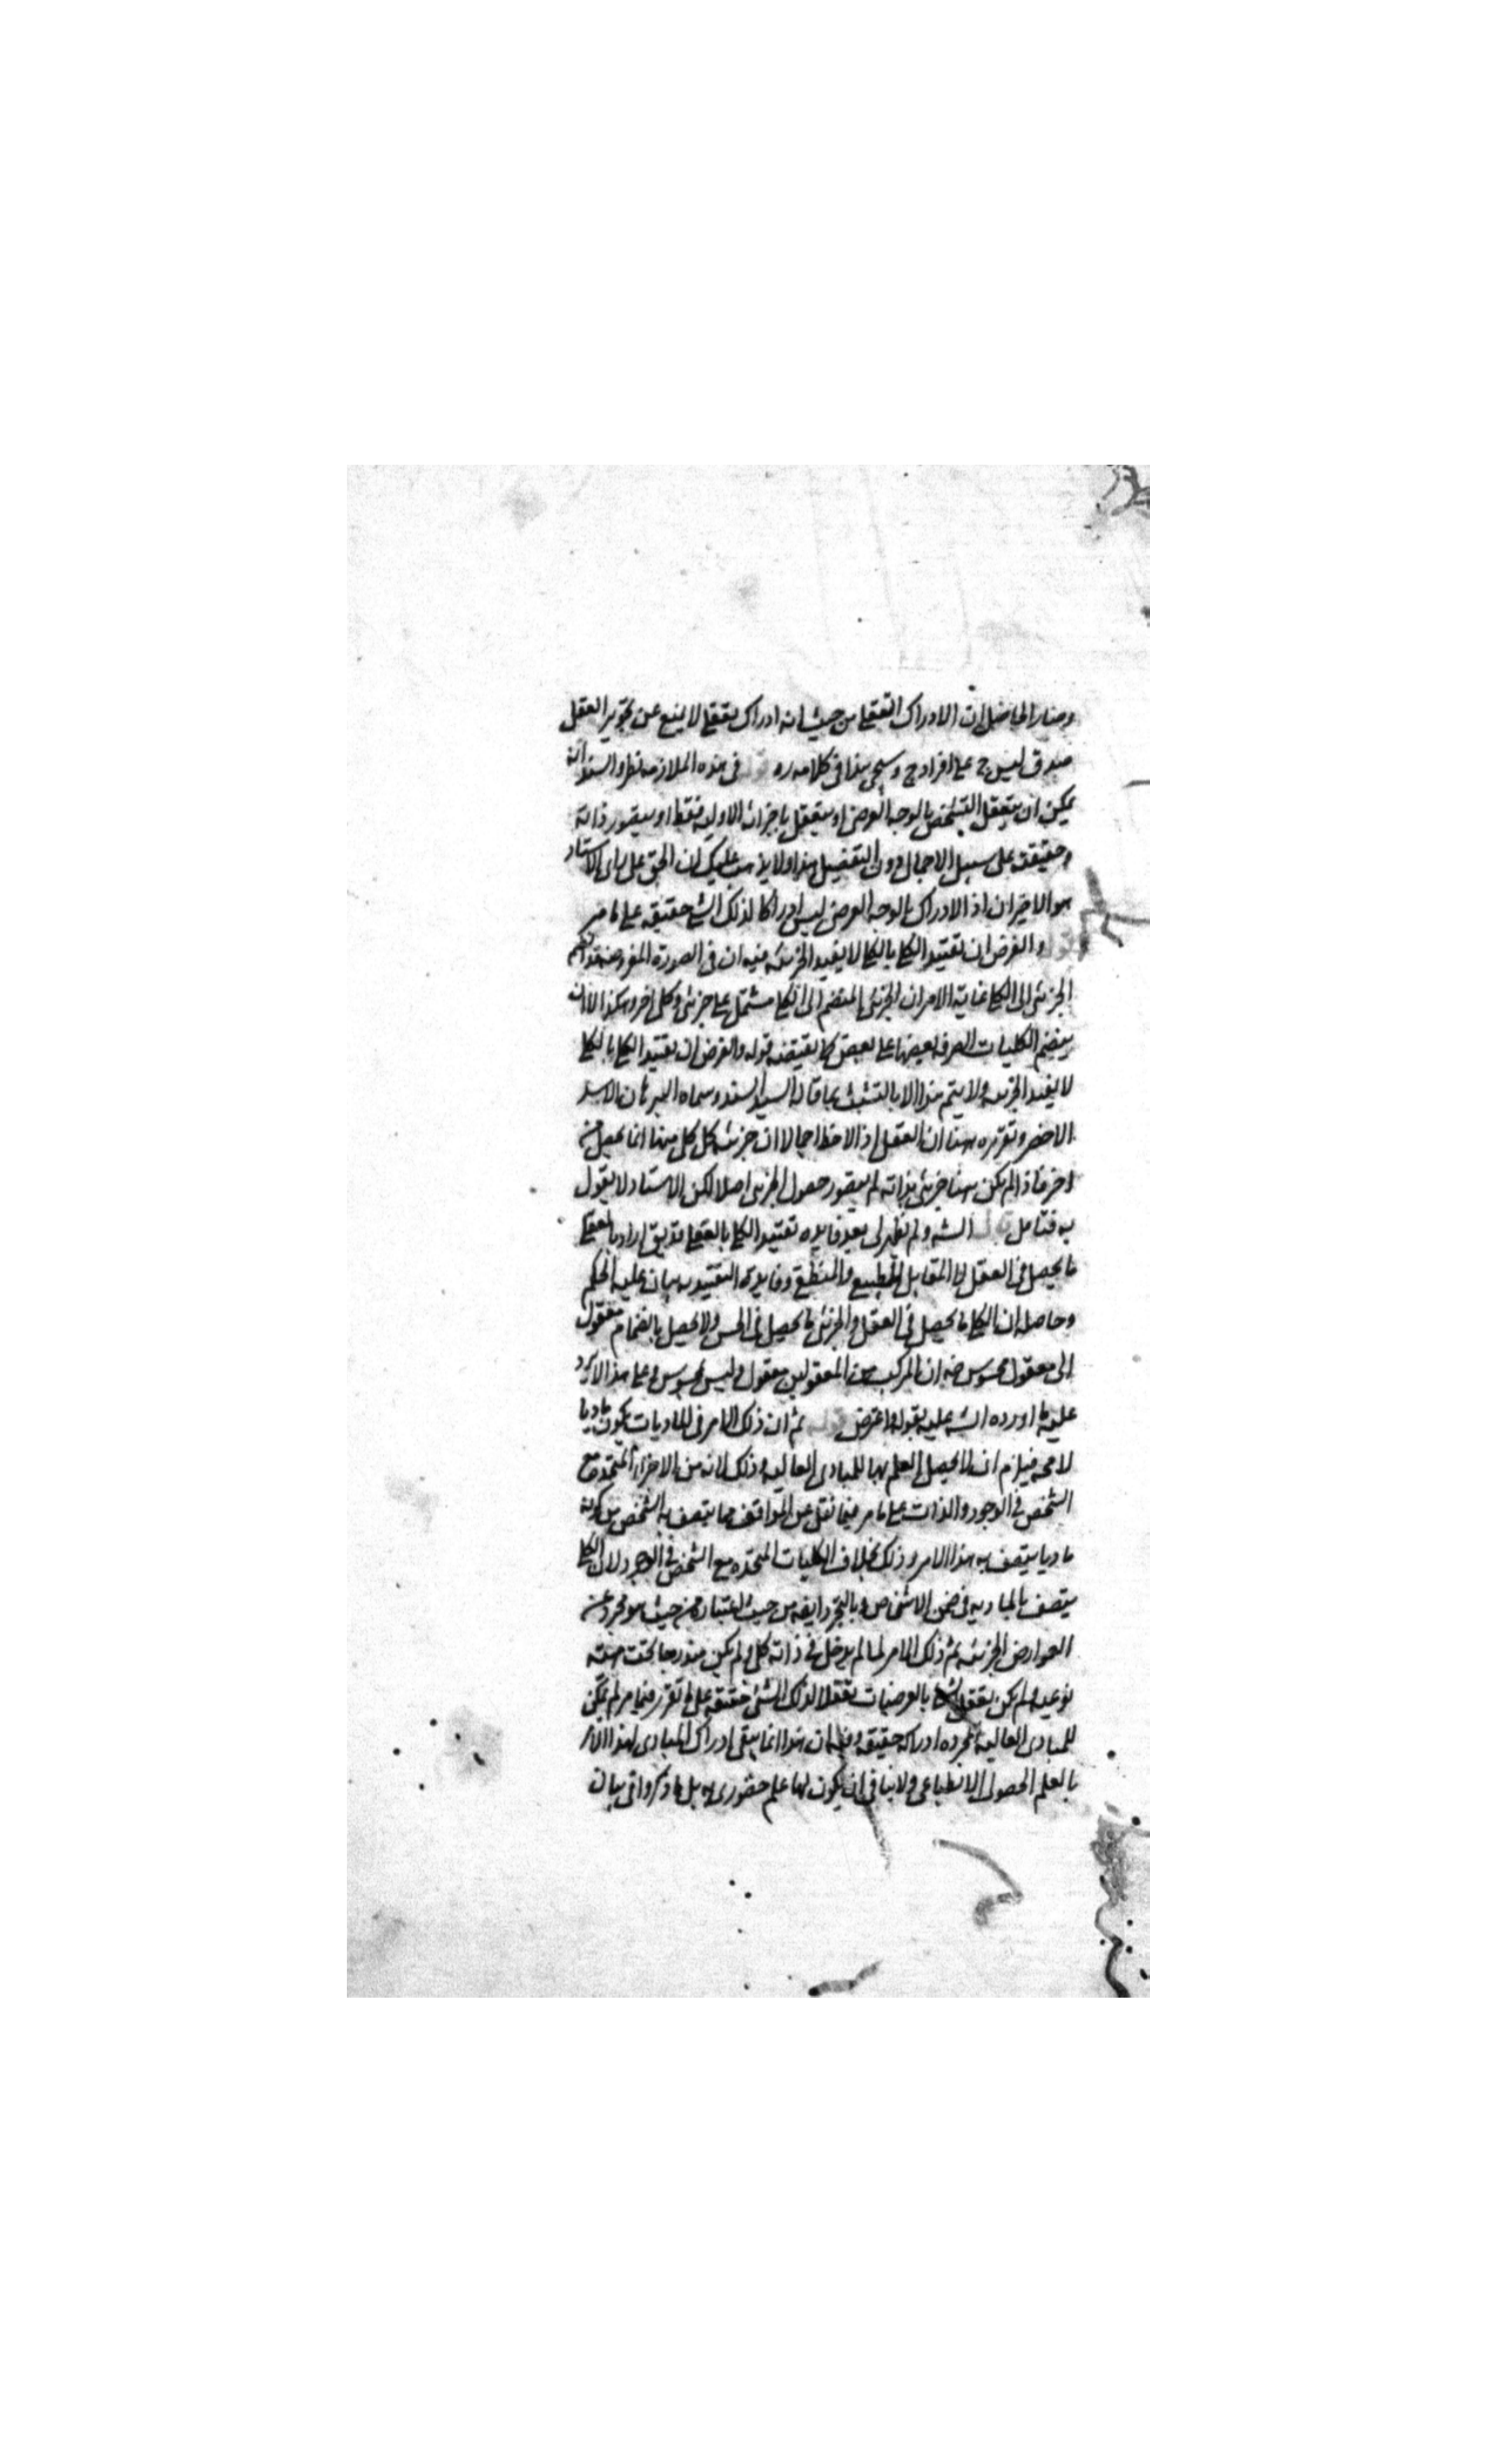 وصار الحاصل ان الادراك التعقلي من حيث انه ادراك تعقلي لا يمنع عن تجويز العقل
صدق ليس ج على افراد ج وسيجي هذا في كلامه في هذه الملازمة نظر والسند انه
يمكن ان يتعقل التشخص بالوجه العرضي او يتعقل باجزائه الاولية فقط او يتصور ذاته
وحقيقته على سبيل الاجمال دون التفصيل هذا ولا يذهب عليك ان الحق على راى الاستاد
هو الاخيران اذ الادراك بالوجه العرضي ليس ادراكا لذلك الشي حقيقة على ما مر
والفرض ان تقييد الكلي بالكلي لا يفيد الجزئية فيه ان في الصورة المفروضة قد انضم
الجزئي الى الكلي غاية الامر ان الجزئي المنضم الى الكلي مشتمل على جزئي وكلي اخر وهكذا لا ان
ينضم الكليات الصرفة بعضها على بعض كما يقتضيه قوله والفرض ان تقييد الكلي بالكلي
لا يفيد الجزئية ولا يتم هذا الا بالتشبث بما قاله السيد السند وسماه البرهان الاسد
الاخصر وتقريره ههنا ان العقل اذا لاحظ اجمالا ان جزئية كل كل منها انما يحصل من
اخر فاذا لم يكن ههنا جزئي بذاته لم يتصور حصول الجزئي اصلا لكن الاستاد لا يقول
به فتامل قال الشه ولم يظهر لى بعد فايده تقييد الكلي بالعقلي قد يق اراد بالعقلي
ما يحصل في العقل لا المقابل للطبيعي والمنطقي وفايدة التقييد به بيان علية الحكم
وحاصله ان الكلي ما يحصل في العقل والجزئي ما يحصل في الحس ولا يحصل بانضمام معقول
الى معقول محسوس ضه ان المركب من المعقولين معقول وليس بمحسوس وعلى هذا لا يرد
عليه ما اورده الشه عليه بقوله واعترض قوله ثم ان ذلك الامر في الماديات يكون ماديا
لا محه فيلزم ان لا يحصل العلم بها للمبادى العالية وذلك لانه من الاجزاء المتحدة مع
الشخص في الوجود والذات على ما مر فيما نقل عن المواقف فما يتصف به الشخص من كونه
ماديا يتصف به هذا الامر وذلك بخلاف الكليات المتحدة مع الشخص في الوجود لان الكلي
يتصف بالمادية في ضمن الاشخاص وبالتجرد ايضه من حيث اعتباره من حيث هو مجرد عن
العوارض الجزئية ثم ذلك الامر لما لم يدخل في ذاته كلي ولم يكن مندرجا تحت مهية
نوعية ولم يكن تعقل بالعرضيات تعقلا لذلك الشئ حقيقة على ما تقرر فيما مر لم يمكن
للمبادى العالية المجردة ادراكه حقيقة وفيه ان هذا انما ينفى ادراك المبادى لهذا الامر
بالعلم الحصولى الانطباعى ولا ينافى ان يكون لها علم حضورى به بل ما ذكروا فى بيان